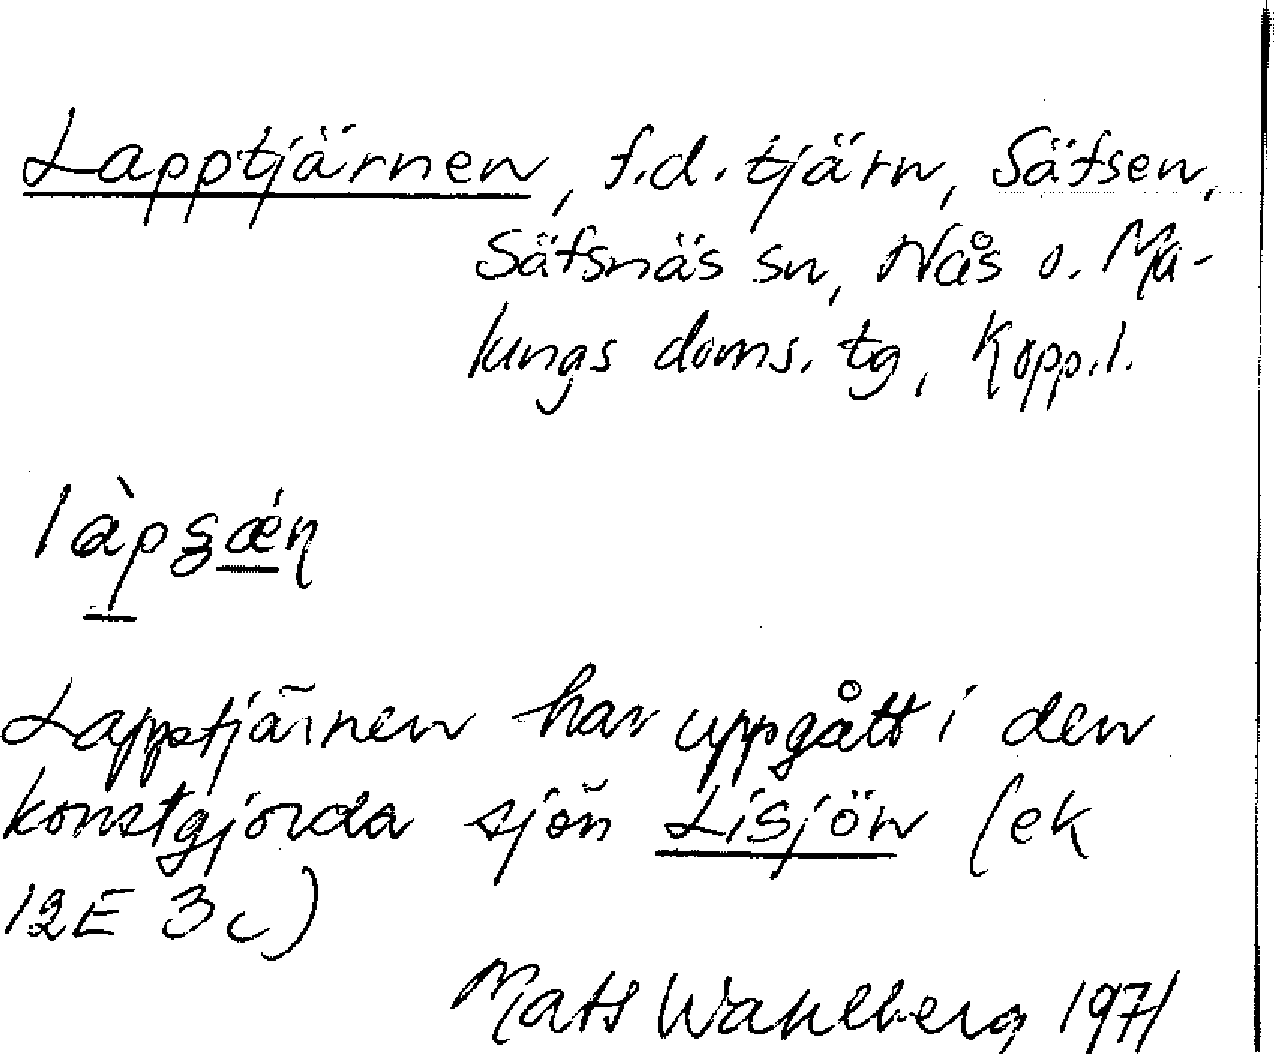 Lapptjärnen, f.d. tjärn, Säfsen,
Säfsnäs sn, Nås o. Ma-
lungs doms. tg, Kopp.l.
Lapptjärnen har uppgått i den
konstgjorda sjön Lisjön (ek
12E 3c)
Mats Wahlberg 1971